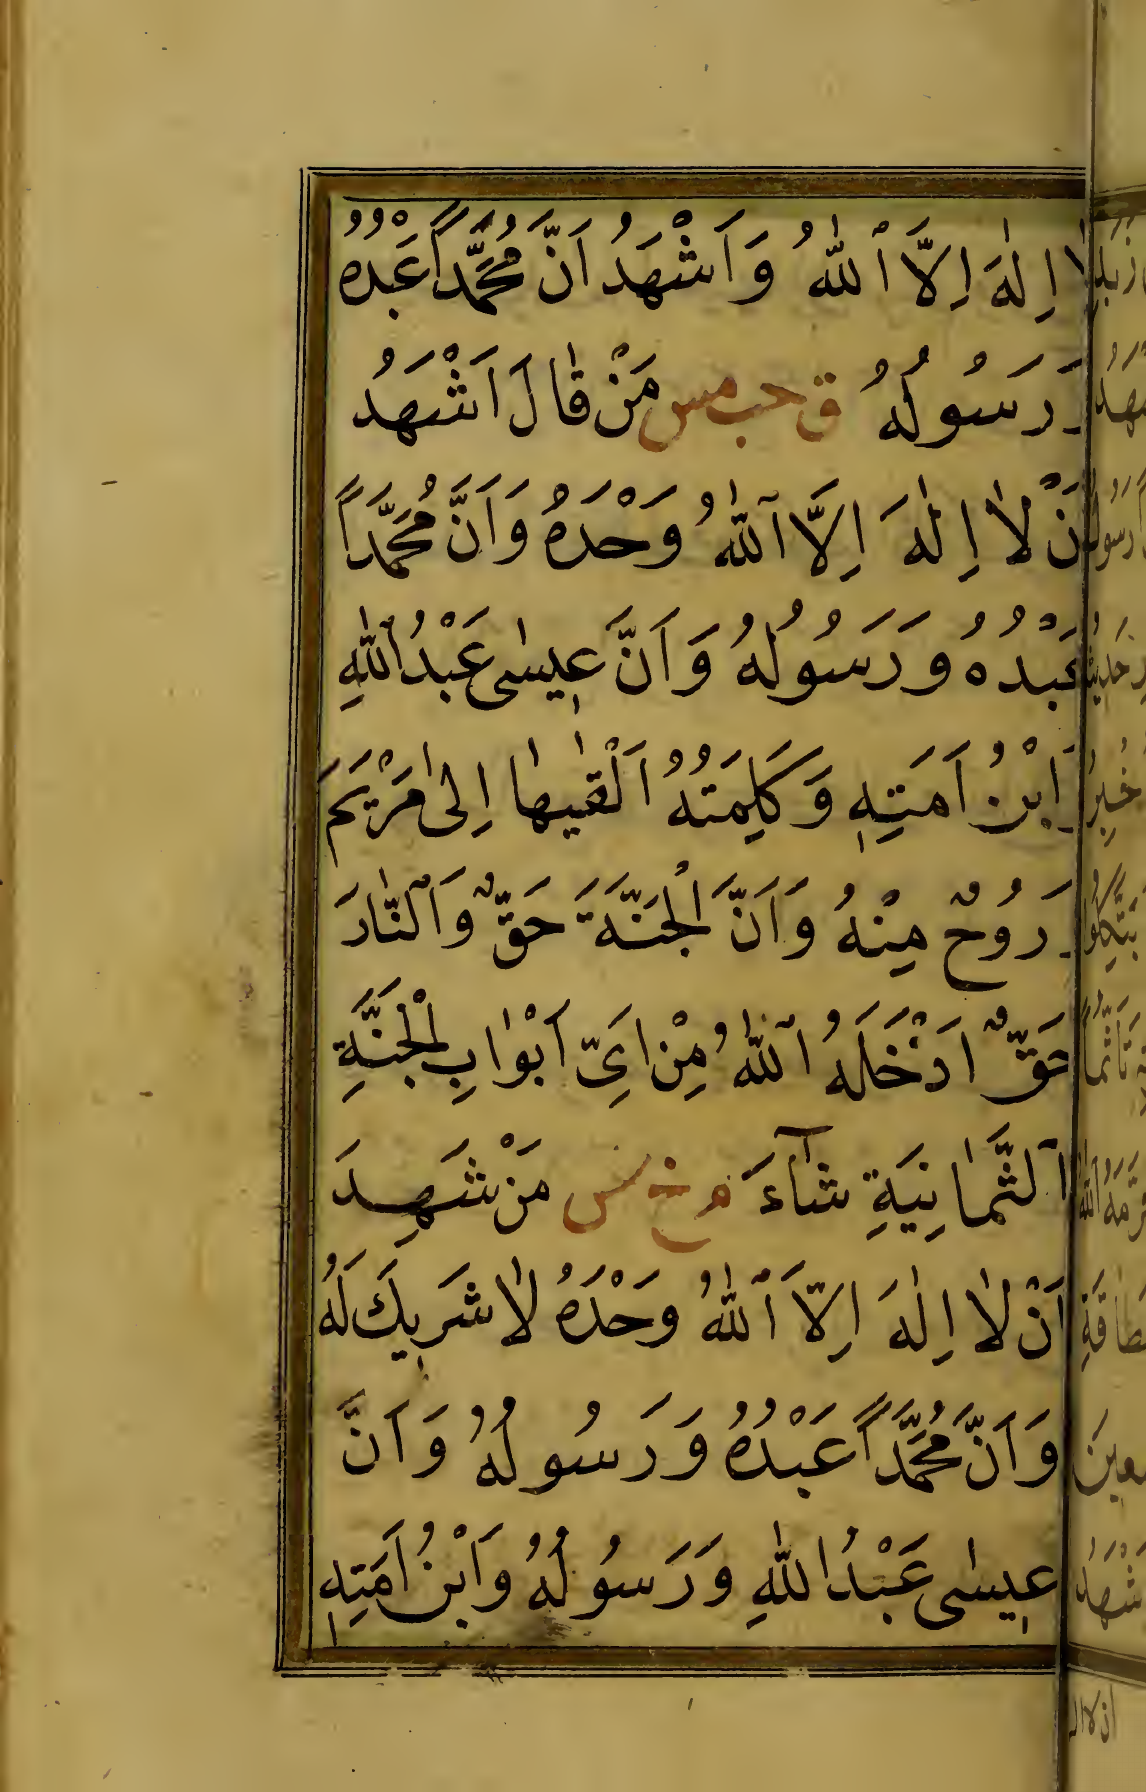 لَا اِلٰهَ اِلَّا ٱللّٰهُ وَاَشْهَدُ اَنَّ مُحَمَّدًا عَبْدُهُ
وَرَسُولُهُ ق حب مس مَنْ قَالَ اَشْهَدُ
اَنْ لٰا اِلٰهَ اِلَّا ٱللّٰهُ وَحْدَهُ وَاَنَّ مُحَمَّدًا
عَبْدُهُ وَرَسُولُهُ وَاَنَّ عِيسٰى عَبْدُ ٱللّٰهِ
وَابْنُ اَمَتِهِ وَكَلِمَتُهُ اَلْقٰيهٰا اِلىٰ مَرْيَمَ
وَرُوحٌ مِنْهُ وَاَنَّ الْجَنَّةَ حَقٌّ وَٱلنّٰارَ
حَقٌّ اَدْخَلَهُ ٱللّٰهُ مِنْ اَىِّ اَبْوٰابِ الْجَنَّةِ
ٱلثَّمٰانِيَةِ شٰٓاءَ م خ س مَنْ شَهِدَ
اَنْ لٰا اِلٰهَ اِلَّا ٱللّٰهُ وَحْدَهُ لٰا شَرِيكَ لَهُ
وَاَنَّ مُحَمَّدًا عَبْدُهُ وَرَسُولُهُ وَاَنَّ
عِيسٰى عَبْدُ اللّٰهِ وَرَسُولُهُ وَابْنُ اَمَتِهِ